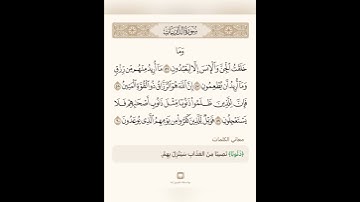 سُورَةُ الذَّارِيَاتِ
وَمَا
خَلَقْتُ الْجِنَّ وَالْإِنسَ إِلَّا لِيَعْبُدُونِ ۝٥٦ مَا أُرِيدُ مِنْهُم مِّن رِّزْقٍ
وَمَا أُرِيدُ أَن يُطْعِمُونِ ۝٥٧ إِنَّ اللَّهَ هُوَ الرَّزَّاقُ ذُو الْقُوَّةِ الْمَتِينُ ۝٥٨
فَإِنَّ لِلَّذِينَ ظَلَمُوا ذَنُوبًا مِّثْلَ ذَنُوبِ أَصْحَابِهِمْ فَلَا
يَسْتَعْجِلُونِ ۝٥٩ فَوَيْلٌ لِّلَّذِينَ كَفَرُوا مِن يَوْمِهِمُ الَّذِي يُوعَدُونَ ۝٦٠
معاني الكلمات
﴿ذَنُوبًا﴾ نَصِيبًا مِنَ العَذَابِ سَيَنْزِلُ بِهِمْ.